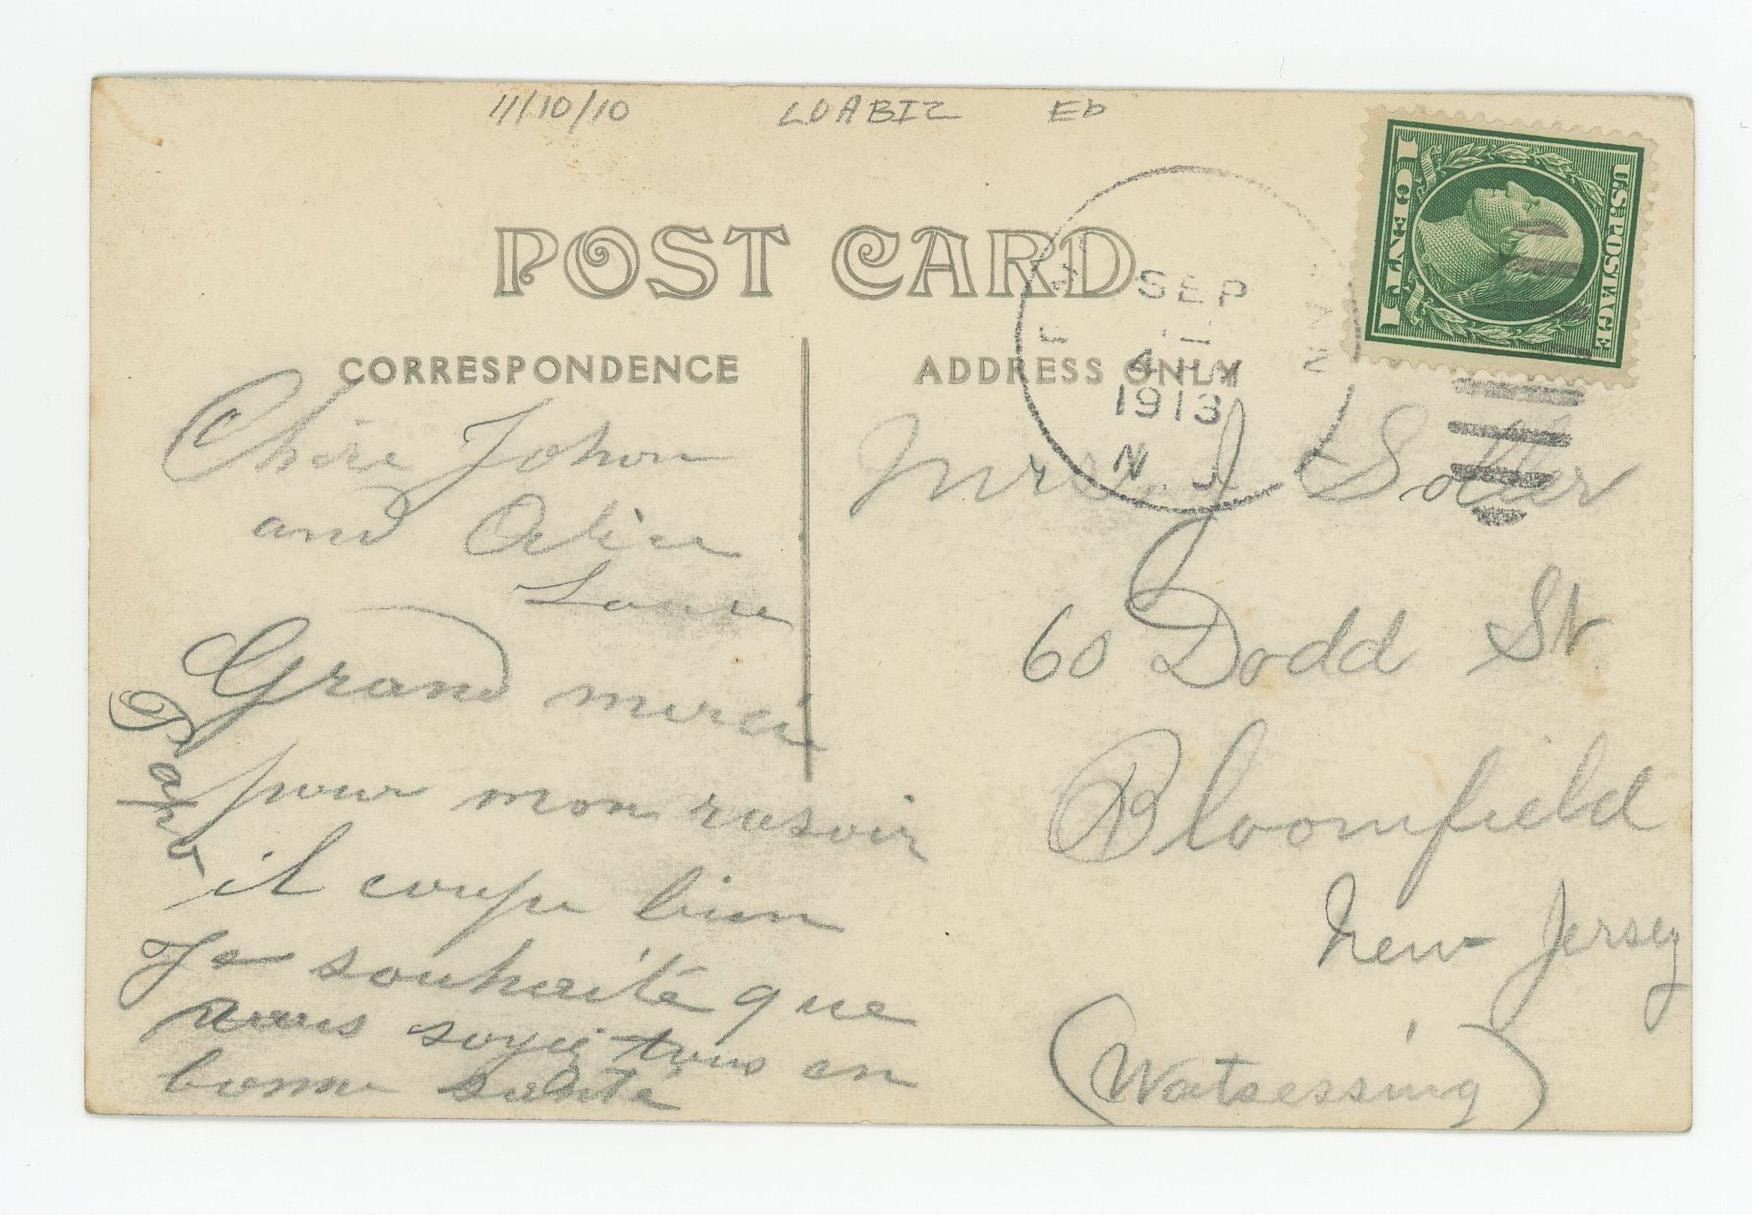 11/10/10 LDABIZ ED
POST CARD
U.S. POSTAGE
1 ONE CENT 1
SEP
4
1913
N.J.
CORRESPONDENCE
ADDRESS ONLY
Chère Johon
and Alice
Grand merci
pour mon rasoir
il coupe bien
Je souhaite que
vous soyez tous en
bonne santé
Papa
Mrs. J. Soller
60 Dodd St.
Bloomfield
New Jersey
(Watsessing)